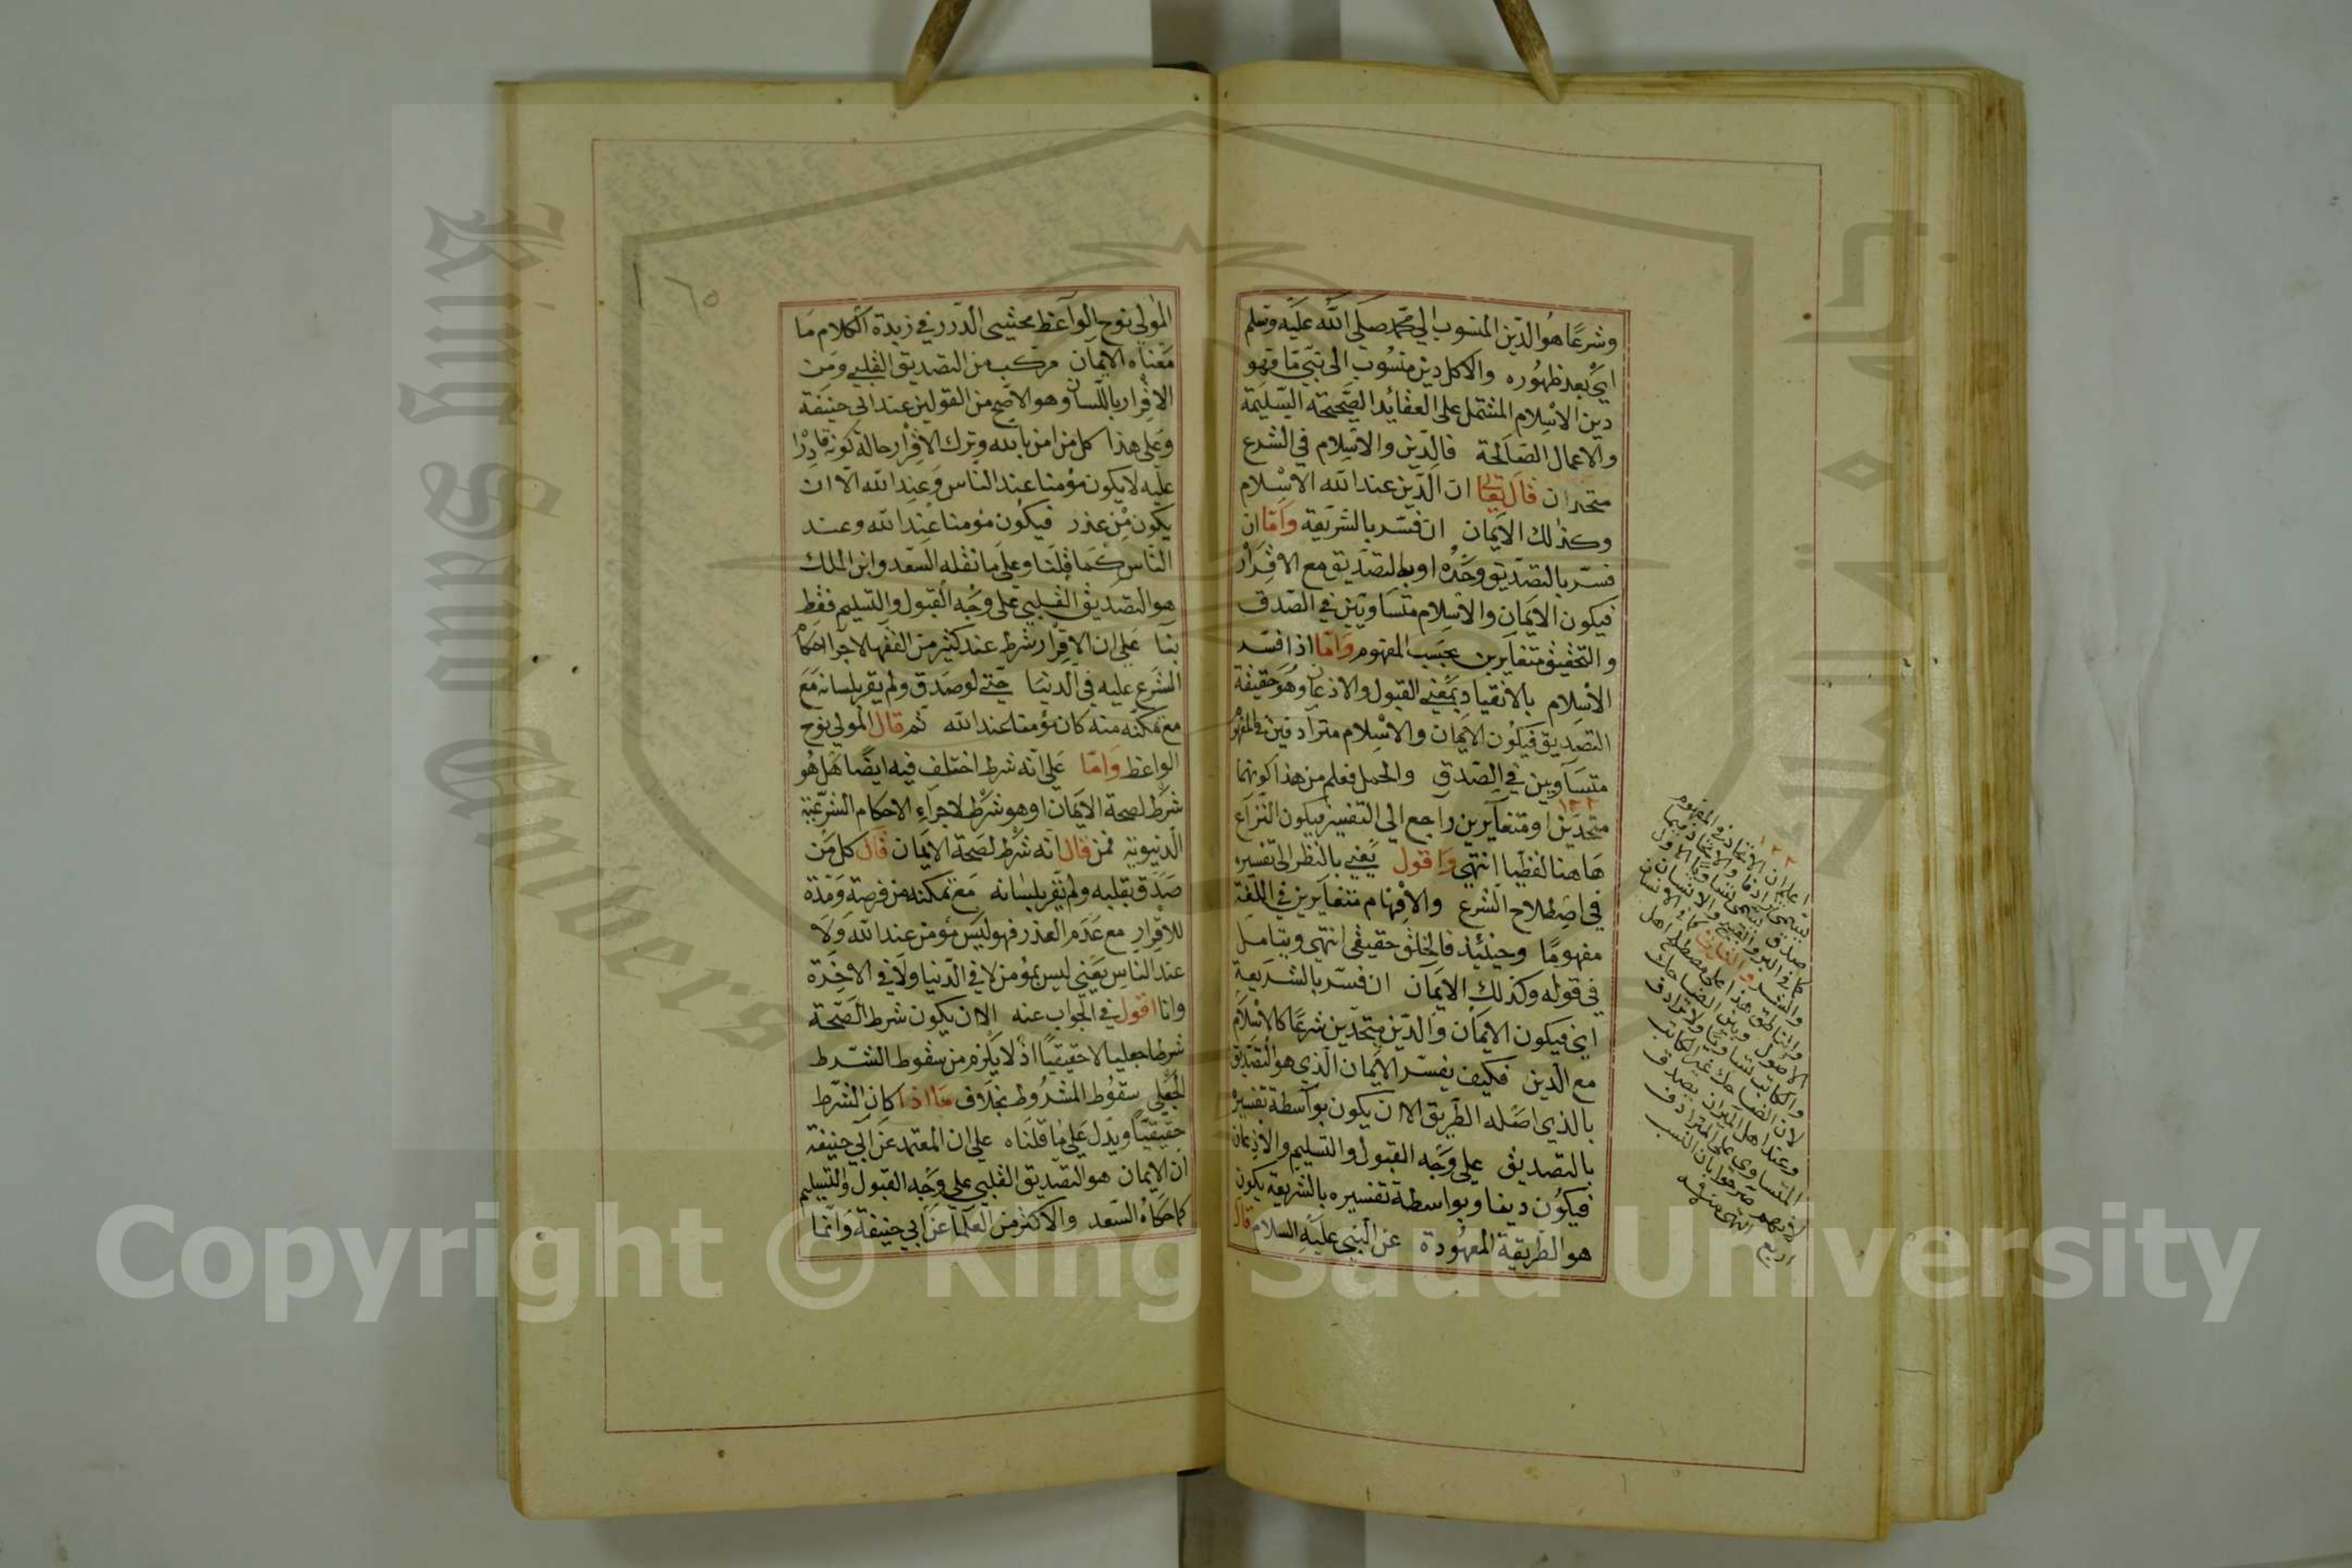 وشرعا هو الدين المنسوب الي محمد صلى الله عليه وسلم
اي بعد ظهوره والا كل دين منسوب الى نبي ما فهو
دين الاسلام المشتمل على العقائد الصحيحة السليمة
والاعمال الصالحة فالدين والاسلام في الشرع
متحدان قال تعالى ان الدين عند الله الاسلام
وكذلك الايمان ان فسر بالشريعة واما ان
فسر بالتصديق وحده او بالتصديق مع الاقرار
فيكون الايمان والاسلام متساويين في الصدق
والتحقيق متغايرين بحسب المفهوم واما اذا فسر
الاسلام بالانقياد بمعني القبول والاذعان وهو حقيقة
التصديق فيكون الايمان والاسلام مترادفين في المفهوم
متساويين في الصدق والحمل فعلم من هذا كونهما
متحدين او متغايرين راجع الي التفسير فيكون النزاع
هاهنا لفظيا انتهي واقول يعني بالنظر الى تفسيره
في اصطلاح الشرع والافهام متغايرين في اللغة
مفهوما وحينئذ فالخلف حقيقي انتهي ويتامل
في قوله وكذلك الايمان ان فسر بالشريعة
اي فيكون الايمان والدين متحدين شرعا كالاسلام
مع الدين فكيف يفسر الايمان الذي هو التصديق
بالذي اصله الطريق الا ان يكون بواسطة تفسيره
بالتصديق علي وجه القبول والتسليم والاذعان
فيكون دينا وبواسطة تفسيره بالشريعة يكون
هو الطريقة المعهودة عن النبي عليه السلام قال
١٢٢
١٢٢
والناطق هذا على مصطلح اهل
الاصول وبين الضاحك
لان الضاحك غير الكاتب
وعند اهل الميزان يصدق
المتساوي على المترادف
لانهم صرحوا بان النسب
اربع انتهى منه
١٦٥
المولي نوح الواعظ محشي الدرر في زبدة الكلام ما
معناه الايمان مركب من التصديق القلبي ومن
الاقرار باللسان وهو الاصح من القولين عند ابي حنيفة
وعلى هذا كل من امن بالله وترك الاقرار حالة كونه قادرا
عليه لا يكون مؤمنا عند الناس وعند الله الا ان
يكون من عذر فيكون مؤمنا عند الله وعند
الناس كما قلنا وعلى ما نقله السعد وابن الملك
هو التصديق القلبي على وجه القبول والتسليم فقط
بنآ على ان الاقرار شرط عند كثير من الفقها لاجرا احكام
الشرع عليه في الدنيا حتي لو صدق ولم يقر بلسانه مع
مع تمكنه منه كان مؤمنا عند الله ثم قال المولي نوح
الواعظ واما علي انه شرط اختلف فيه ايضا هل هو
شرط لصحة الايمان او هو شرط لاجراء الاحكام الشرعية
الدنيوية فمن قال انه شرط لصحة الايمان قال كل من
صدق بقلبه ولم يقر بلسانه مع تمكنه من فرصة ومدة
للاقرار مع عدم العذر فهو ليس مؤمن عند الله ولا
عند الناس يعني ليس بمؤمن لا في الدنيا ولا في الاخرة
وانا اقول في الجواب عنه الا ان يكون شرط الصحة
شرطا جعليا لا حقيقيا اذ لا يلزم من سقوط الشرط
الجعلي سقوط المشروط بخلاف ما اذا كان الشرط
حقيقيا ويدل علي ما قلناه علي ان المعتمد عن ابي حنيفة
ان الايمان هو التصديق القلبي علي وجه القبول والتسليم
كما حكاه السعد والاكثر من العلما عن ابي حنيفة وانما
King Saud University
Copyright © King Saud University